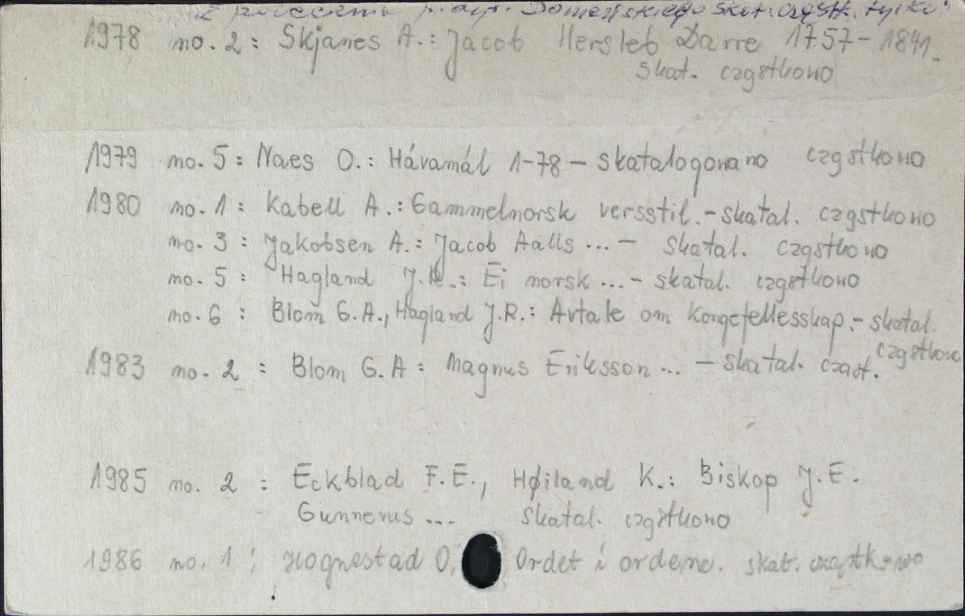 Z polecenia p. dyr. Domańskiego skat. częstk. tylko:
1978 no. 2: Skjanes A.: Jacob Hersleb Darre 1757-1841.
skat. częstkowo
1979 no. 5: Naes O.: Hávamál 1-78 - skatalogowano częstkowo
1980 no. 1: Kabell A.: Gammelnorsk versstil. - skatal. częstkowo
no. 3: Jakobsen A.: Jacob Aalls ... - skatal. częstkowo
no. 5: Hagland J.R.: Ei norsk ... - skatal. częstkowo
no. 6: Blom G.A., Hagland J.R.: Avtale om kongefellesskap. - skatal.
częstkowo
1983 no. 2: Blom G.A: Magnus Eriksson ... - skatal. cząst.
1985 no. 2: Eckblad F.E., Høiland K.: Biskop J.E.
Gunnerus ... skatal. częstkowo
1986 no. 1: Hognestad O, Ordet i ordene. skat. cząstkowo